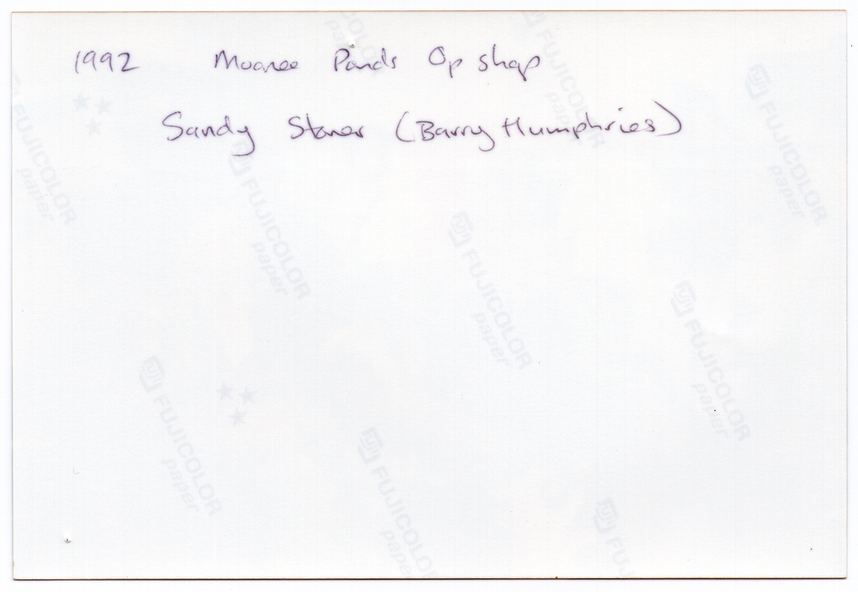 1992 Moonee Ponds Op shop
Sandy Stones (Barry Humphries)
FUJICOLOR paper
FUJICOLOR paper
FUJICOLOR paper
FUJICOLOR paper
FUJICOLOR paper
FUJICOLOR paper
FUJICOLOR paper
FUJICOLOR paper